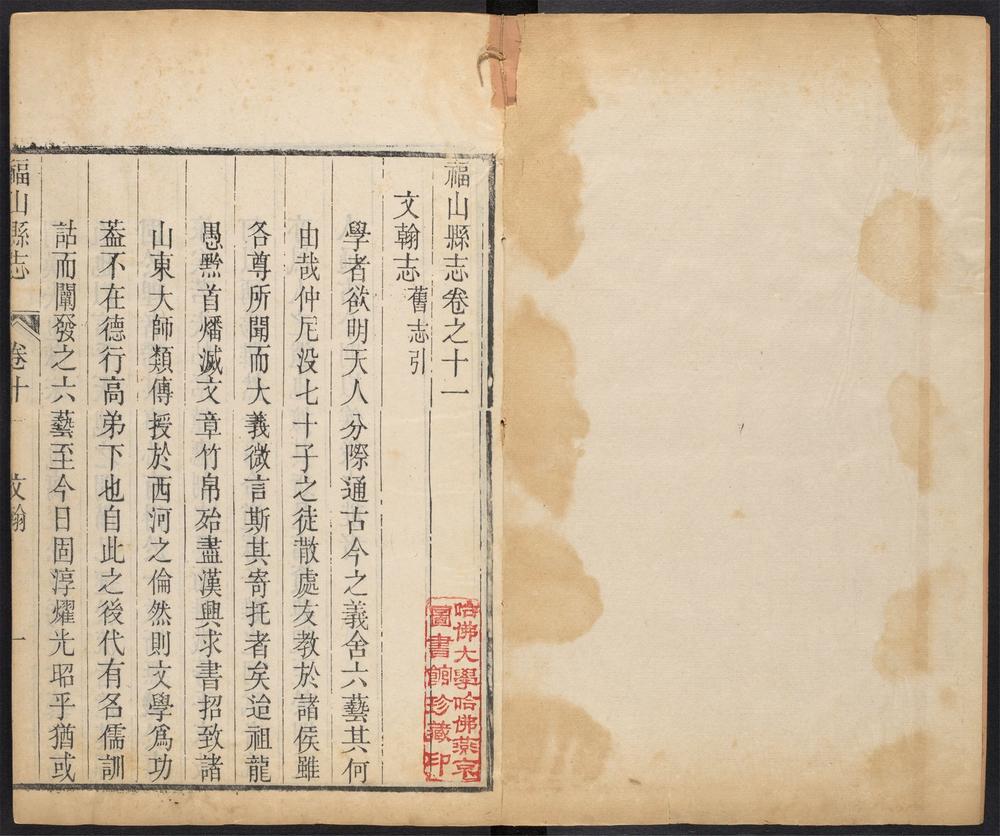 福山縣志卷之十一
文翰志 舊志引
學者欲明天人分際通古今之義舍六藝其何
由哉仲尼没七十子之徒散處友教於諸侯雖
各尊所聞而大義微言斯其寄托者矣迨祖龍
愚黔首燔滅文章竹帛殆盡漢興求書招致諸
山東大師類傳授於西河之倫然則文學爲功
葢不在德行高弟下也自此之後代有名儒訓
詁而闡發之六藝至今日固淳燿光昭乎猶或
福山縣志 卷十一 文翰 一
哈佛大學哈佛燕京
圖書館珍藏印